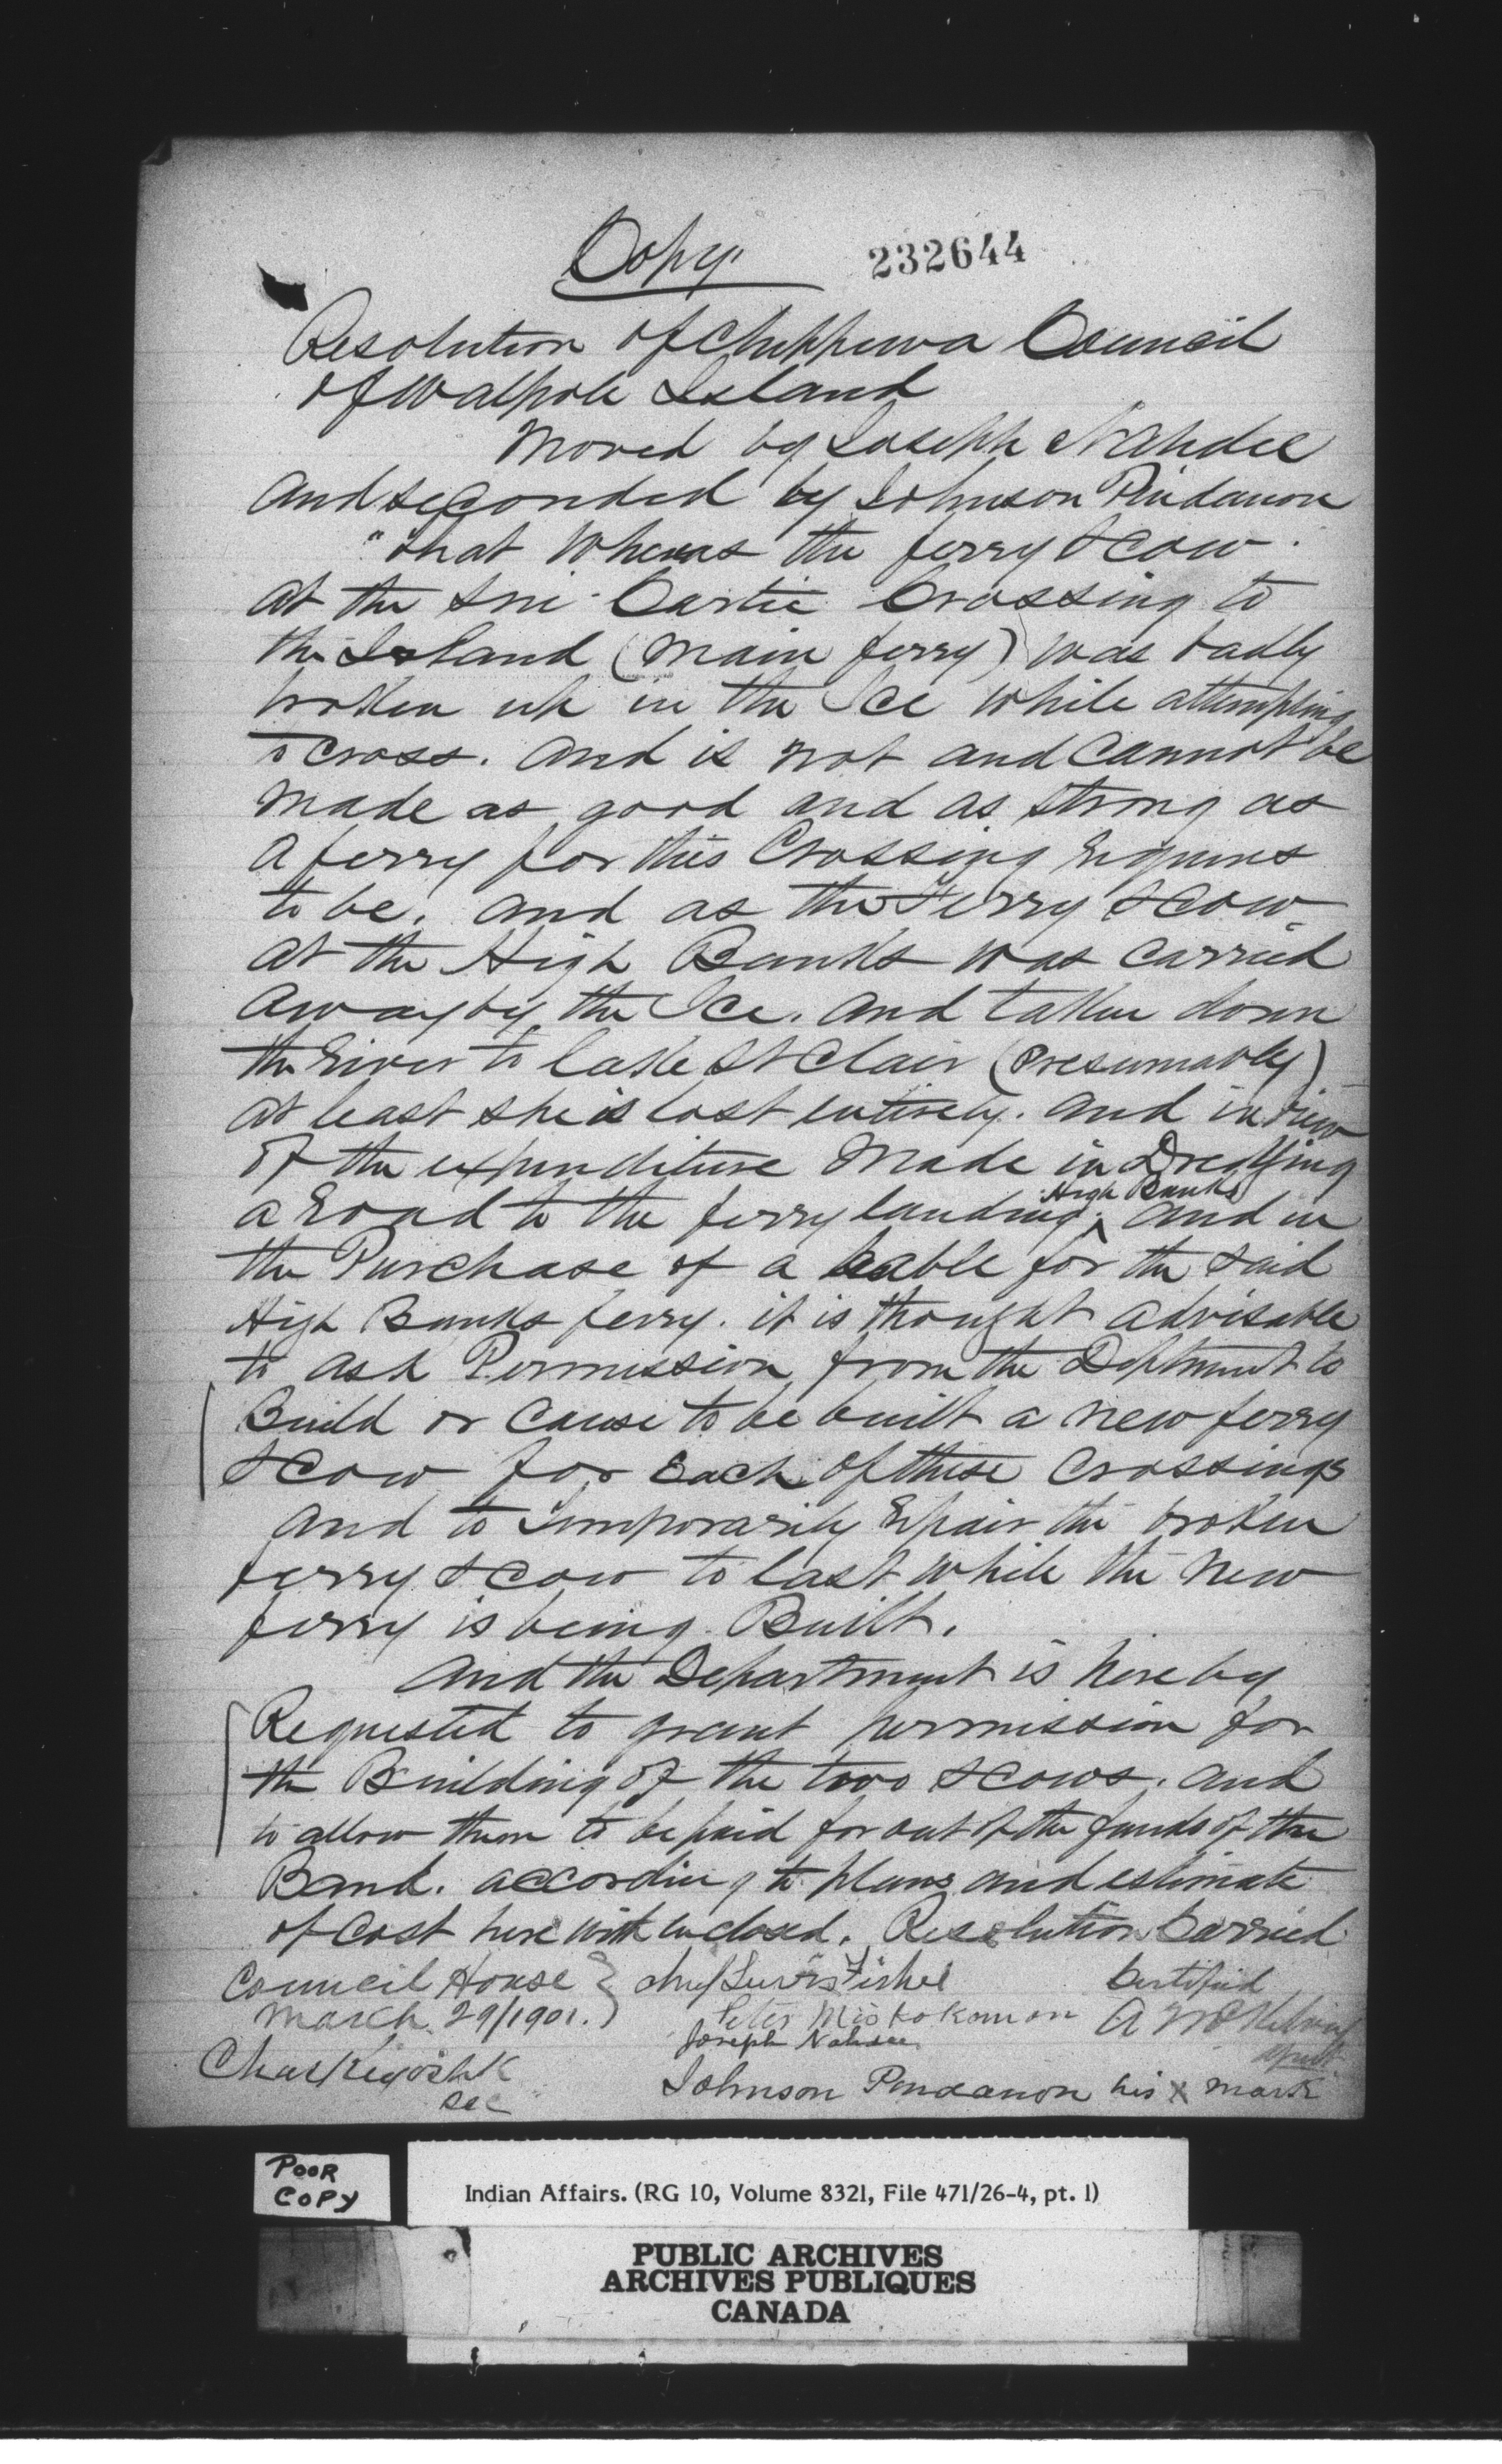 Copy 232644
Resolution of Chippewa Council
of Walpole Island
Moved by Joseph Nahdee
and seconded by Johnson Pindanon
"that Whereas the ferry scow
at the Sni Cartie Crossing to
the Island (main ferry) was badly
broken up in the Ice while attempting
to cross. and is not and cannot be
made as good and as strong as
a ferry for this Crossing requires
to be. and as the Ferry scow
at the High Banks was carried
away by the Ice. and taken down
the River to Lake St Clair (Presumably)
at least she is lost entirely. and in view
of the expenditure made in Dredging
a Road to the ferry landing ^High Banks and in
the Purchase of a cable for the said
High Banks ferry. it is thought advisable
to ask Permission from the Deptment to
Build or cause to be built a new ferry
scow for each of these crossings
and to temporarily repair the broken
ferry scow to last while the new
ferry is being Built.
and the Department is hereby
Requested to grant permission for
the Building of the two scows. and
to allow them to be paid for out of the funds of the
Band. according to plans and estimate
of cost herewith enclosed. Resolution Carried
Council House } chief Lewis Fisher Certified
March 29/1901. Peter Miskokomon A McKelvey
Joseph Nahdee Agent
Chas Kiyoshk
Sec
Johnson Pindanon his X mark
POOR
COPY
Indian Affairs. (RG 10, Volume 8321, File 471/26-4, pt. 1)
PUBLIC ARCHIVES
ARCHIVES PUBLIQUES
CANADA